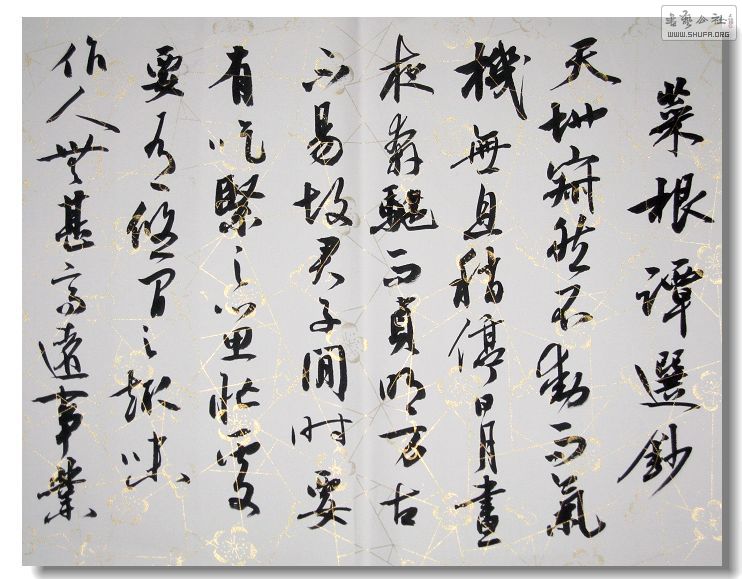 菜根譚選鈔
天地寂然不動而氣
機無息稍停日月晝
夜奔馳而貞明万古
不易故君子閒时要
有吃緊之心思忙處
要有悠閒之趣味
作人無甚高遠事業
書藝公社
WWW.SHUFA.ORG